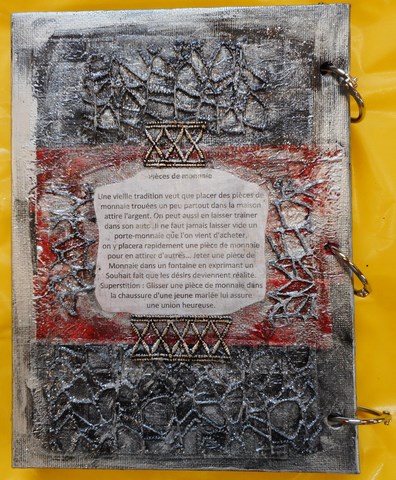 pièces de monnaie
Une vieille tradition veut que placer des pièces de
monnaie trouées un peu partout dans la maison
attire l'argent. On peut aussi en laisser trainer
dans son auto .Il ne faut jamais laisser vide un
porte-monnaie que l'on vient d'acheter,
on y placera rapidement une pièce de monnaie
pour en attirer d'autres... Jeter une pièce de
Monnaie dans un fontaine en exprimant un
Souhait fait que les désirs deviennent réalité.
Superstition : Glisser une pièce de monnaie dans
la chaussure d'une jeune mariée lui assure
une union heureuse.